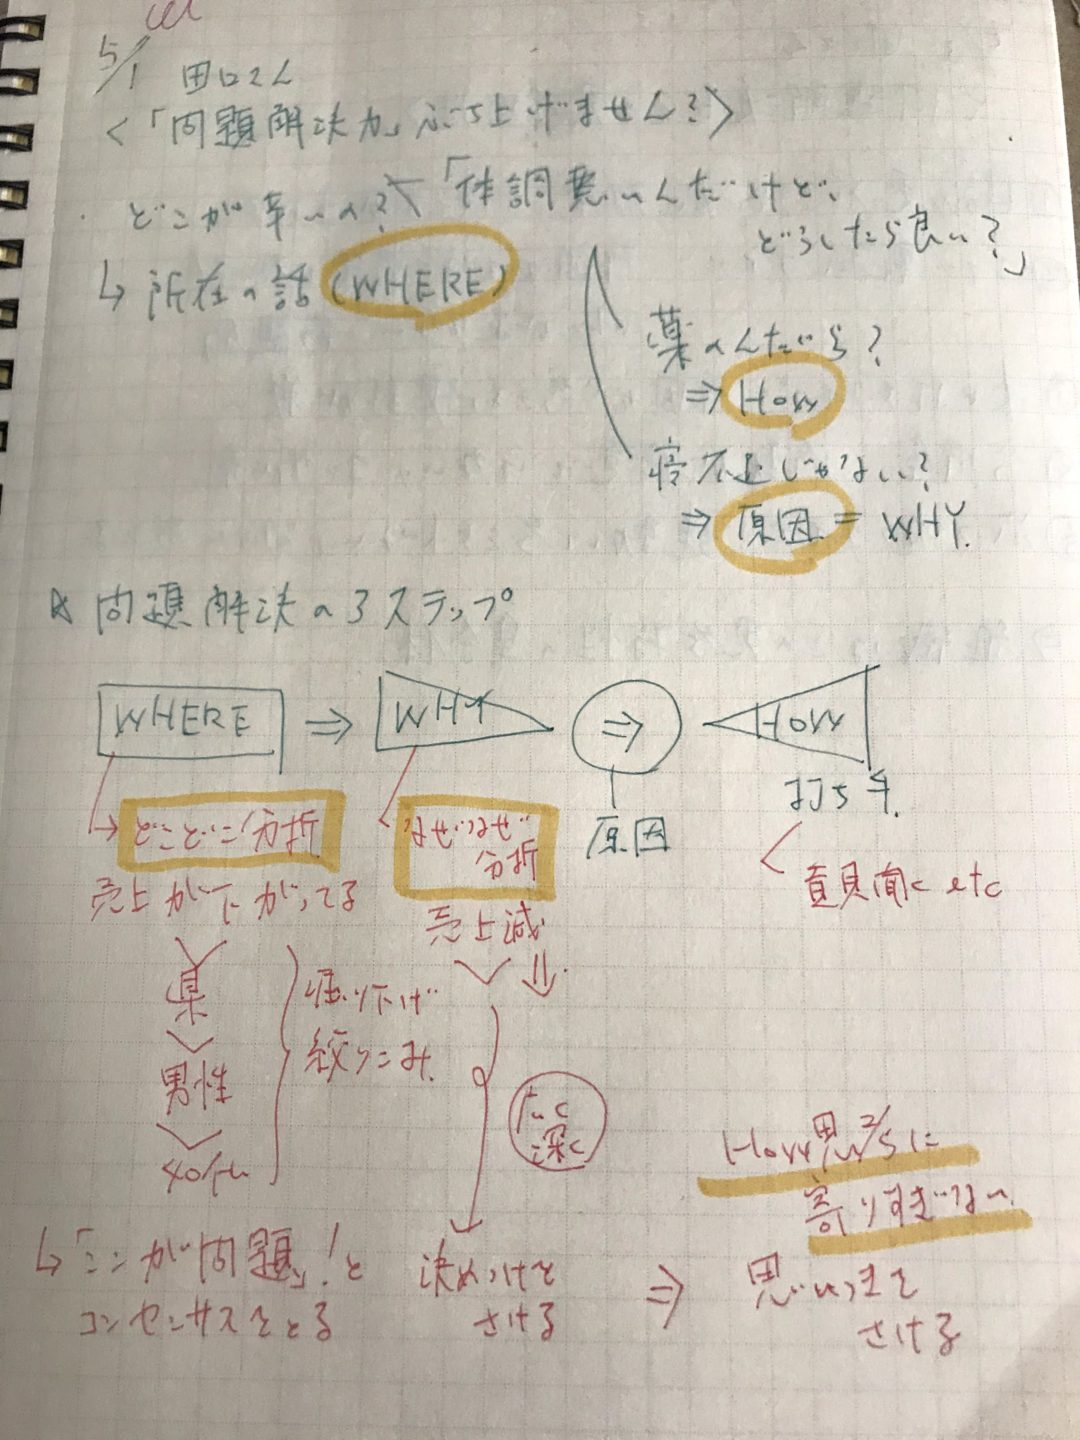 5/1 田口さん
<「問題解決力」ぶち上げません?>
・どこが辛いの?
「体調悪いんだけど、
どうしたら良い?」
↳ 所在の話 (WHERE)
薬のんだら?
⇒ How
寝不足じゃない?
⇒ 原因 = WHY.
☆ 問題解決の3ステップ
WHERE ⇒ WHY ⇒ How
打ち手.
原因
→ どこどこ分析
なぜなぜ
分析
売上が下がってる
売上減
県
男性
40代
掘り下げ
絞りこみ
広く
深く
How思考に
寄りすぎない
↳「ココが問題」!と
コンセンサスをとる
決めつけを
さける
⇒ 思いつきを
さける